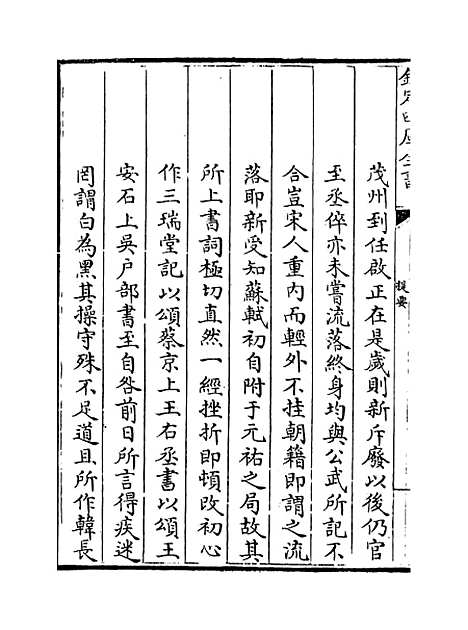 欽定四庫全書
提要
茂州到任啟正在是歲則新斥廢以後仍官
至丞倅亦未嘗流落終身均與公武所記不
合豈宋人重內而輕外不挂朝籍即謂之流
落耶新受知蘇軾初自附于元祐之局故其
所上書詞極切直然一經挫折即頓改初心
作三瑞堂記以頌蔡京上王右丞書以頌王
安石上吳户部書至自咎前日所言得疾迷
罔謂白為黑其操守殊不足道且所作韓長